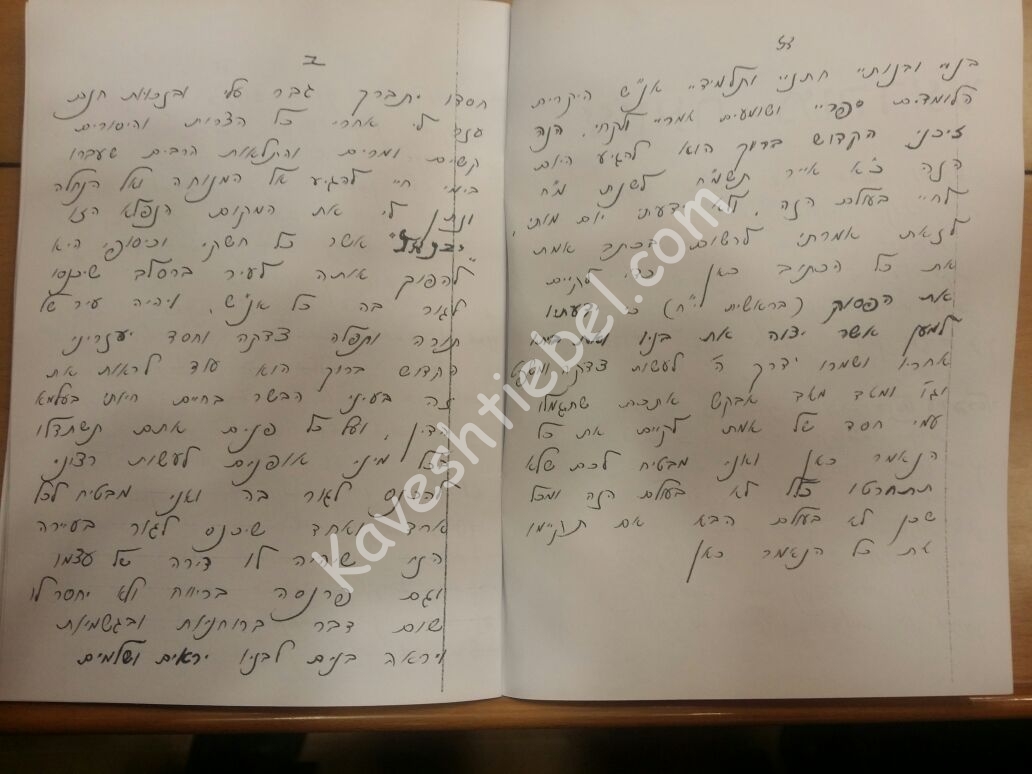 צז
בני ובנותי חתניי ותלמידיי אנ"ש היקרים
הלומדים ספריי ושומעים אמריי ולקחי, הנה
זיכני הקדוש ברוך הוא להגיע היום
הנה כ"א אייר תשמ"ח לשנת מ"ח
לחיי בעולם הזה, ולא ידעתי יום מותי,
לזאת אמרתי לרשום בכתב אמת
את כל הכתוב כאן כדי לקיים
את הפסוק (בראשית י"ח) כי ידעתיו
למען אשר יצוה את בניו ואת ביתו
אחריו ושמרו דרך ה' לעשות צדקה ומשפט
וגו' ומאד מאד אבקש אתכם שתגמלו
עמי חסד של אמת לקיים את כל
הנאמר כאן ואני מבטיח לכם שלא
תתחרטו כלל לא בעולם הזה ומכל
שכן לא בעולם הבא אם תקיימו
את כל הנאמר כאן
ב
חסדו יתברך גבר עלי ובזכות חנם
עזר לי אחרי כל הצרות והיסורים
קשים ומרים והתלאות הרבים שעברו
בימי חיי להגיע אל המנוחה ואל הנחלה
ונתן לי את המקום הנפלא הזה
"יבנאל" אשר כל חשקי וכיסופי היא
להפוך אותה לעיר ברסלב שיכנסו
לגור בה כל אנ"ש, ויהיה עיר של
תורה ותפלה צדקה וחסד יעזריני
הקדוש ברוך הוא עוד לראות את
זה בעיני הבשר בחיים חיותי בעלמא
הדין, ועל כל פנים אתם תשתדלו
בכל מיני אופנים לעשות רצוני
להכנס לגור בה ואני מבטיח לכל
אחד ואחד שיכנס לגור בעיירה
הזו שיהיה לו דירה של עצמו
וגם פרנסה בריווח ולא יחסר לו
שום דבר ברוחניות ובגשמיות
ויראה בנים לבניו יראים ושלמים
kaveshtiebel.com